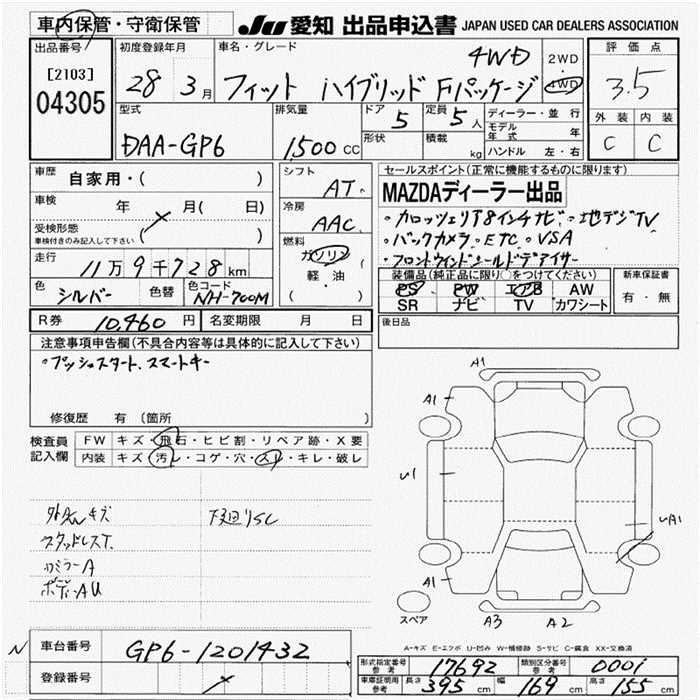 車内保管・守衛保管
JU 愛知 出品申込書 JAPAN USED CAR DEALERS ASSOCIATION
出品番号
[2103]
04305
初度登録年月
28 3月
車名・グレード
4WD
フィット ハイブリッド Fパッケージ
2WD
4WD
評価点
3.5
外装 内装
C C
型式
DAA-GP6
排気量
1,500 CC
ドア 5
形状
定員 5人
積載 kg
ディーラー・並行
モデル年式 年
ハンドル 左・右
車歴 自家用・( )
車検 年 月( 日)
受検形態
車検付きのみ記入して下さい ( )
走行 11万9千728km
色 シルバー 色替 色コード NH-700M
シフト AT
冷房 AAC
燃料 ガソリン
軽・油
( )
セールスポイント(正常に機能するものに限ります)
MAZDAディーラー出品
・カロッツェリア8インチナビ・地デジTV
・バックカメラ・ETC・VSA
・フロントウインドシールドデアイサー
装備品(純正品に限り○をつけてください)
PS PW エアB AW
SR ナビ TV カワシート
新車保証書
有・無
R券 10,460円 名変期限 月 日
後日品
注意事項申告欄(不具合内容等は具体的に記入して下さい)
・プッシュスタート、スマートキー
修復歴 有(箇所 )
検査員記入欄
FW キズ・飛石・ヒビ割・リペア跡・X要
内装 キズ・汚レ・コゲ・穴・スレ・キレ・破レ
外AWキズ 下廻りSC
スタッドレスT.
ミラーA
ボディーAU
A1
A1
U1
UA1
A1
A3 A2
スペア
A-キズ E-エクボ U-凹み W-補修跡 S-サビ C-腐食 XX-交換済
N
車台番号 GP6-1201432
登録番号
形式指定番号 参考 17692 類別区分番号 参考 0001
車庫証明用 参考 長さ 395 cm 幅 169 cm 高さ 155 cm